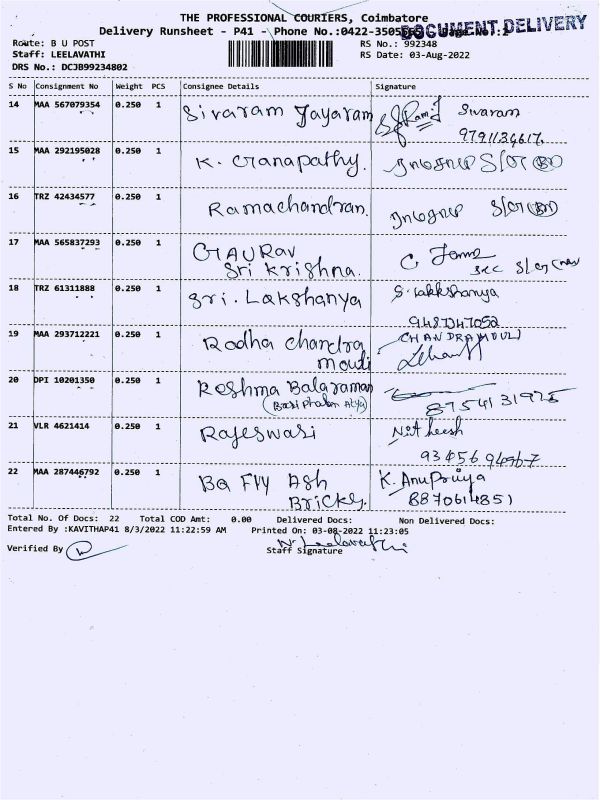 THE PROFESSIONAL COURIERS, Coimbatore
Delivery Runsheet - P41 - Phone No.:0422-3505
DOCUMENT DELIVERY
Route: B U POST
RS No.: 992348
Staff: LEELAVATHI
RS Date: 03-Aug-2022
DRS No.: DCJB99234802
S No Consignment No Weight PCS Consignee Details Signature
14 MAA 567079354 0.250 1 Sivaram Jayaram Sivaram
15 MAA 292195028 0.250 1 K. Ganapathy.
16 TRZ 42434577 0.250 1 Ramachandran.
17 MAA 565837293 0.250 1 GAURAV
Sri Krishna.
18 TRZ 61311888 0.250 1 Sri. Lakshanya S. Lakkshanya
19 MAA 293712221 0.250 1 Radha Chandra CHANDRAMOULI
mouli
20 DPI 10201350 0.250 1 Reshma Balaraman
21 VLR 4621414 0.250 1 Rajeswari Nitheesh
22 MAA 287446792 0.250 1 BQ Fly Ash K. Anupriya
Bricks. 8870614851
Total No. Of Docs: 22 Total COD Amt: 0.00 Delivered Docs: Non Delivered Docs:
Entered By :KAVITHAP41 8/3/2022 11:22:59 AM Printed On: 03-08-2022 11:23:05
Verified By Staff Signature